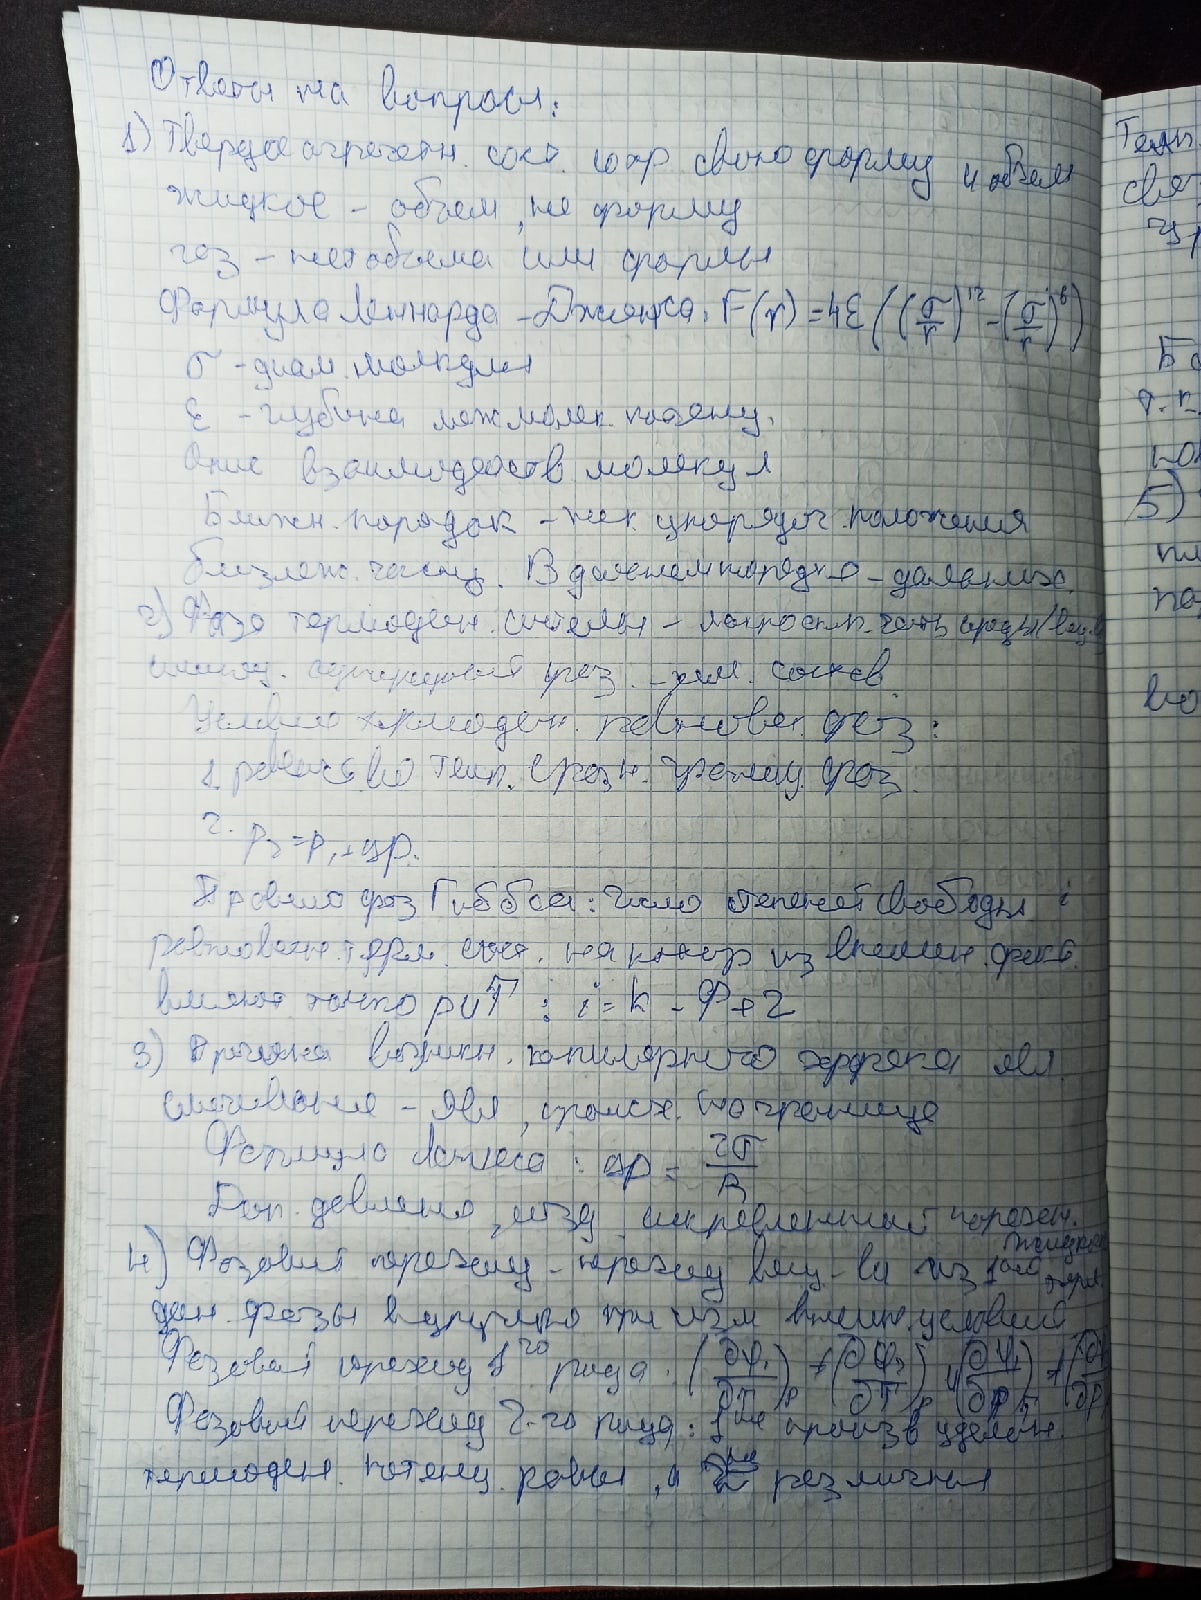 Ответы на вопросы:
1) Твердое агрегатн. сост. сохр свою форму и объем
жидкое - объем, не форму
газ - нет объема или формы
Формула Леннарда - Джонса: F(r) = 4ε((σ/r)^12 - (σ/r)^6)
σ - диам. молекулы
ε - глубина межмолек. потенц.
Опис взаимодейств молекул
Ближн. порядок - упорядоч. положения
близлеж. частиц. В дальнем порядке - дальних.
2) Фаза термодин. системы -
хим. состав
Условие термодин. равновес. фаз:
1. равенство темп. гранич. фаз.
2. p₂ = p₁ + Δp.
Правило фаз Гиббса: Число степеней свободы i
равновесн. терм. сист. на котор из внешн. факт.
влияют только p и T : i = k - Φ + 2
3) Причина возникн. капиллярного эффекта явл.
смачивание - явл, происх. на границе
Формула Лапласа: Δp = 2σ/R
Доп. давление, из-за искревленной поверхн.
4) Фазовый переход - переход вещ-ва из 1ой термо
дин. фазы в другую при изм внешн. условий
Фазовый переход 1го рода: (∂φ₁/∂T)p ≠ (∂φ₂/∂T)p и (∂φ₁/∂p)T ≠ (∂
Фазовый переход 2-го рода: 1ые произв удельн.
термодин. потенц. равны, а 2ые различны
Темп.
5)